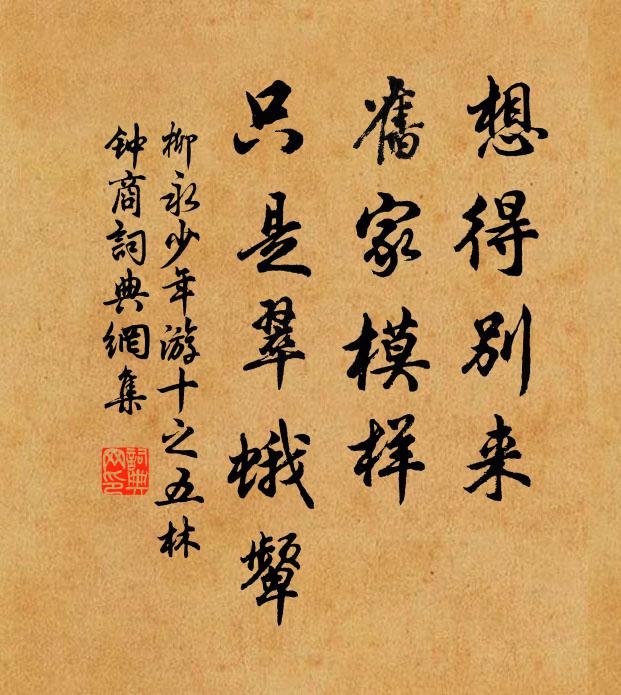 想得别来
舊家模样
只是翠蛾顰
柳永少年游十之五林
钟商詞典網集
詞典
网印